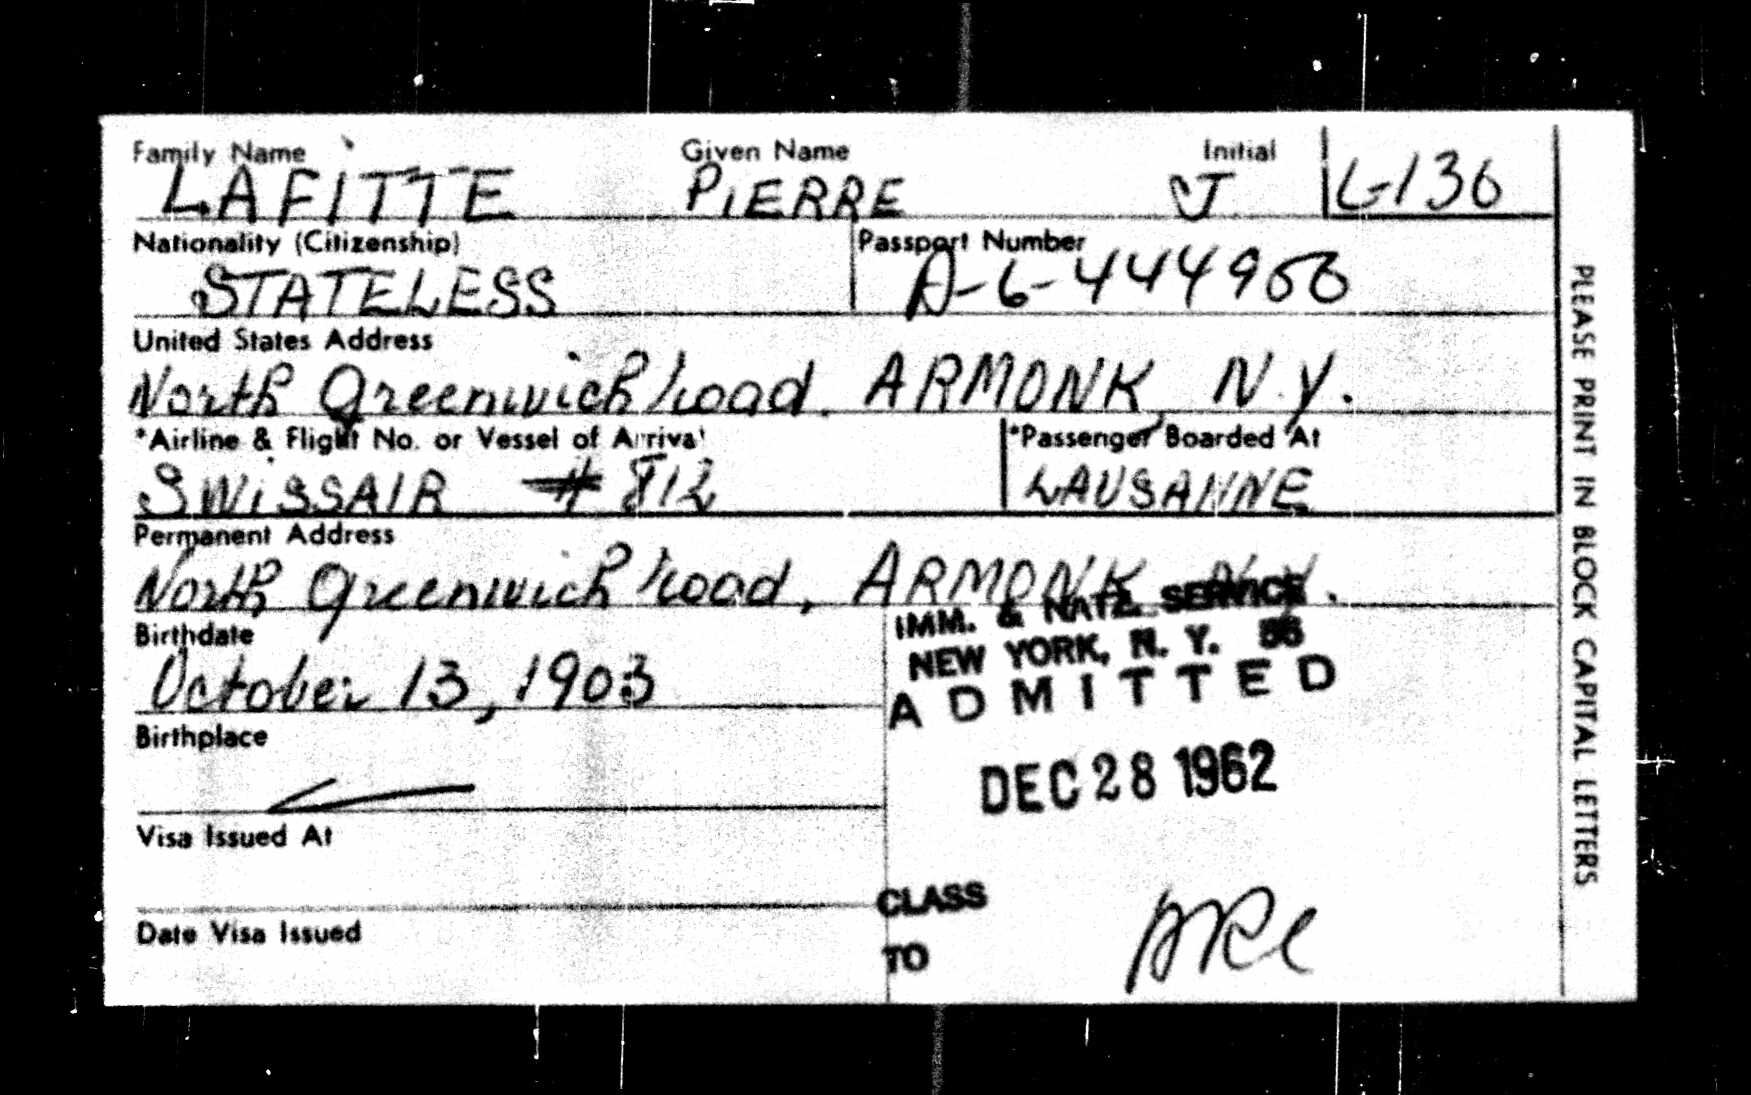 Family Name Given Name Initial
LAFITTE PIERRE J L-136
Nationality (Citizenship) Passport Number
STATELESS A-6-444956
United States Address
North Greenwich road. ARMONK, N.Y.
*Airline & Flight No. or Vessel of Arrival *Passenger Boarded At
SWISSAIR # 812 LAUSANNE
Permanent Address
North Greenwich road, ARMONK N.Y.
IMM. & NATZ. SERVICE
Birthdate
NEW YORK, N. Y. 56
October 13, 1903
ADMITTED
Birthplace
DEC 28 1962
Visa Issued At
CLASS
Date Visa Issued
TO
PLEASE PRINT IN BLOCK CAPITAL LETTERS